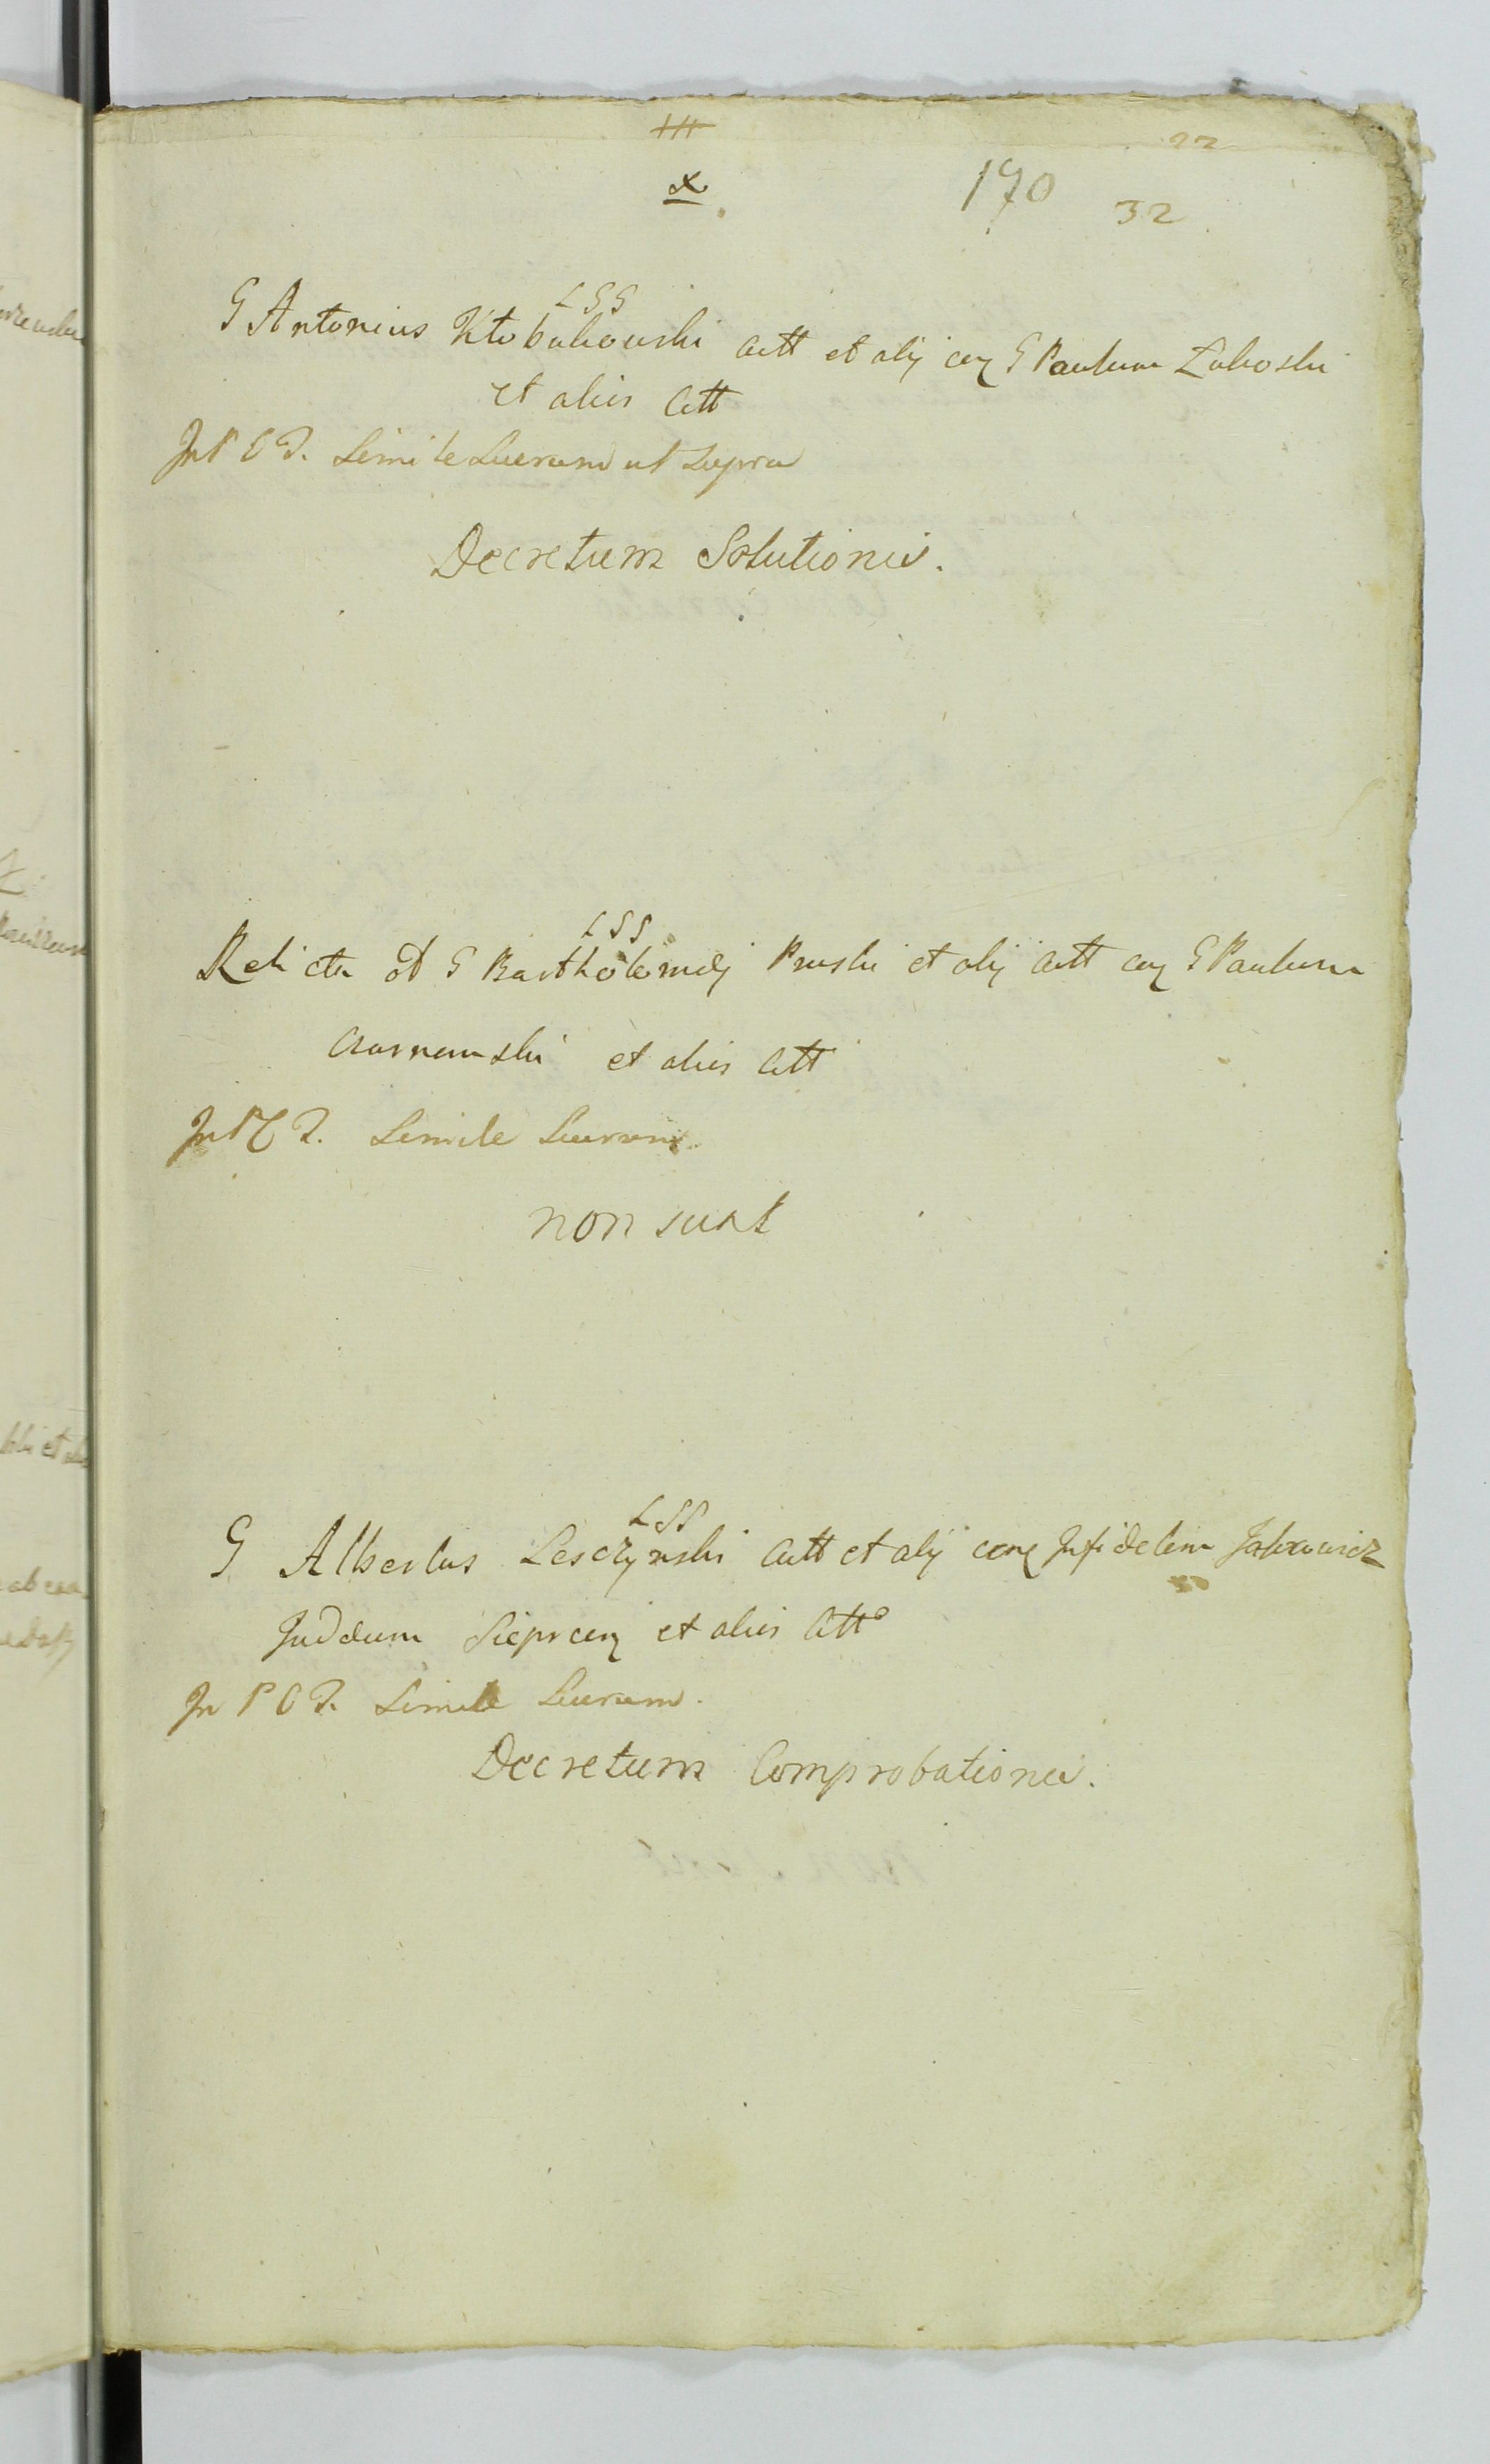 22
x
170 32
LSS
G Antonius Kłobukowski Act et alij cum G Paulum Zaboski
et aliis Citt
In P C T. Simile Lucrum ut Supra
Decretum Solutionis.
LSS
Relicta G Bartholomej Pruski et alij Act cum G Paulum
et aliis Citt
In P C T. Simile Lucrum
non sunt
LSS
G Albertus Lesczynski Act et alij cum Infidelem
Judeum et aliis Citt
In P C T. Simile Lucrum.
Decretum Comprobationis.